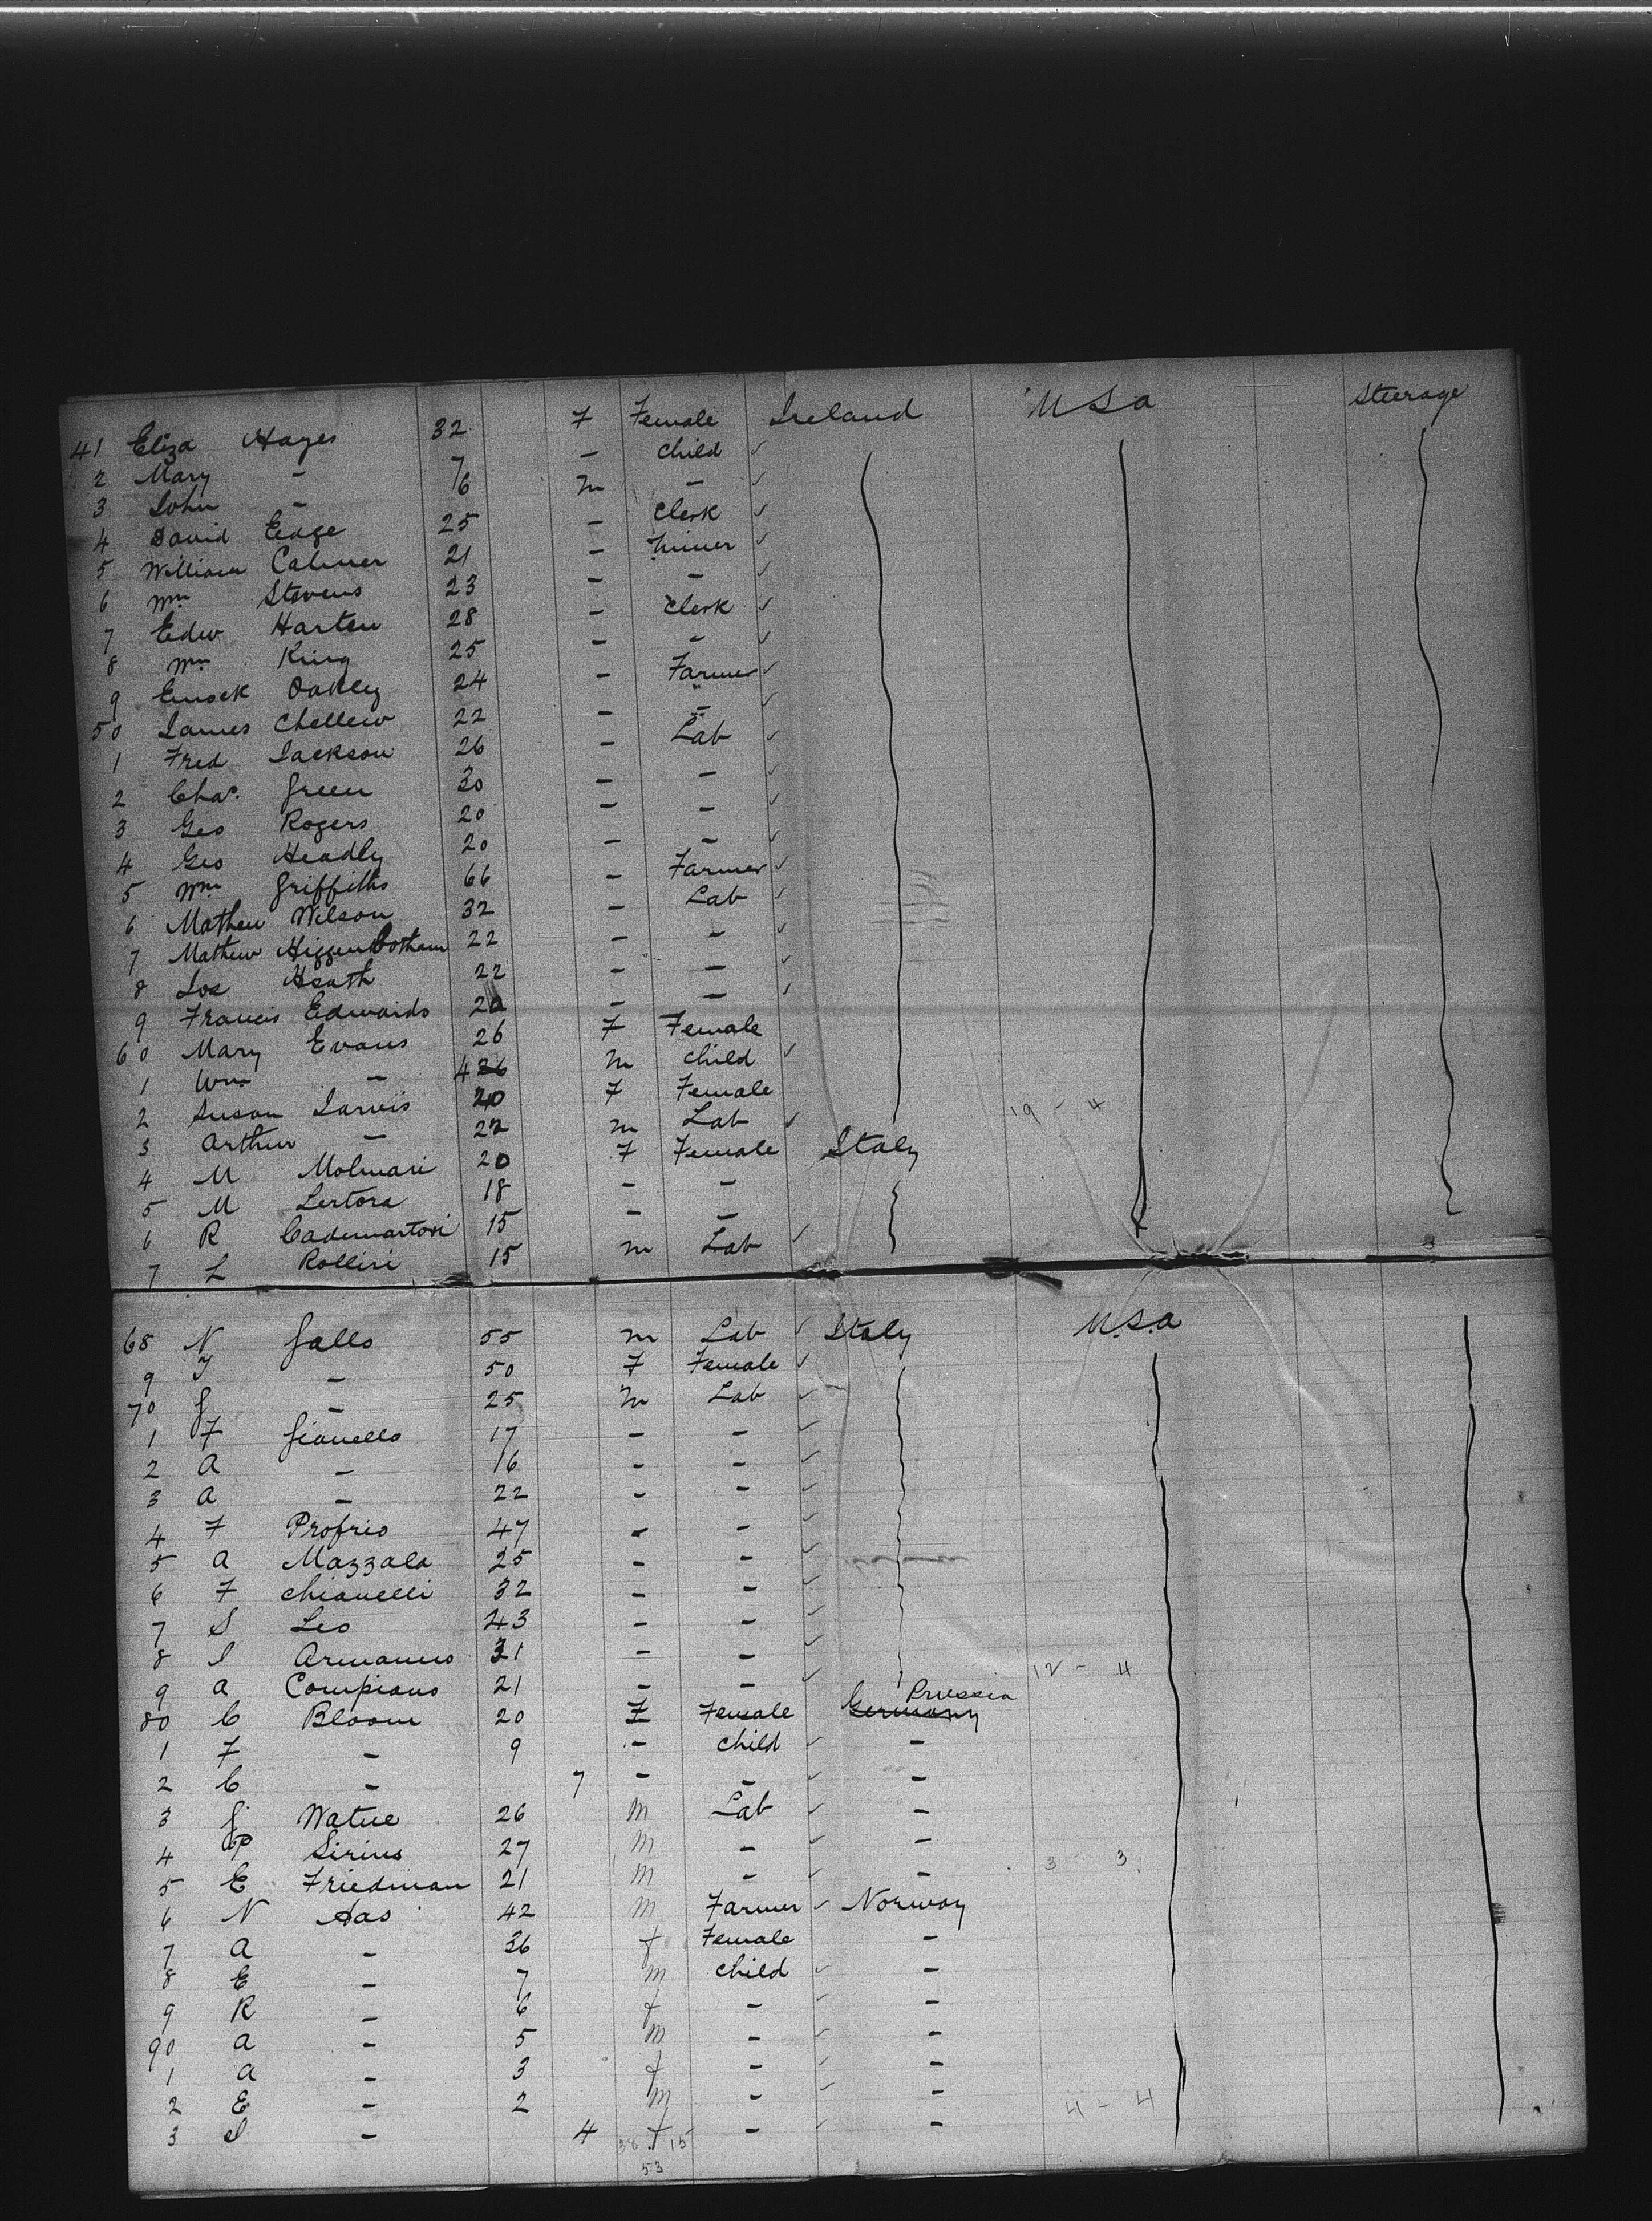 41 Eliza Hayes 32 F Female Ireland U S a Steerage
2 Mary - 7 - child ✓
3 John - 6 m - ✓
4 David Edge 25 - Clerk ✓
5 William Calmer 21 - Miner ✓
6 Wm Stevens 23 - - ✓
7 Edw Harten 28 - Clerk ✓
8 Wm King 25 - - ✓
9 Enock Oakley 24 - Farmer ✓
50 James Chellew 22 - - ✓
1 Fred Jackson 26 - Lab ✓
2 Chas. Green 30 - - ✓
3 Geo Rogers 20 - - ✓
4 Geo Headly 20 - - ✓
5 Wm Griffiths 66 - Farmer ✓
6 Mathew Wilson 32 - Lab ✓
7 Mathew Higgenbotham 22 - - ✓
8 Jos Heath 22 - - ✓
9 Francis Edwards 20 - - ✓
60 Mary Evans 26 F Female
1 Wm - 4 m child ✓
2 Susan Jarvis 20 F Female
3 Arthur - 22 m Lab ✓ 19 - 4
4 M Molinari 20 F Female Italy
5 M Lertora 18 - -
6 R Cademartori 15 - -
7 L Rolliri 15 m Lab ✓
68 N Gallo 55 m Lab ✓ Italy U.S.a
9 - 50 F Female ✓
70 G - 25 m Lab ✓
1 F Gianello 17 - - ✓
2 A - 16 - - ✓
3 A - 22 - - ✓
4 F Profrio 47 - - ✓
5 A Mazzala 25 - - ✓
6 F Chianelli 32 - - ✓
7 S Leo 43 - - ✓
8 I Armanno 31 - - ✓
9 A Compiano 21 - - ✓ 12 - 4
80 C Bloom 20 F Female Germany Prussia
1 F - 9 - child ✓ -
2 C - 7 - - ✓ -
3 G Watue 26 m Lab ✓ -
4 P Sirius 27 m - ✓ -
5 E Friedman 21 m - ✓ - 3 3
6 N Aas 42 m Farmer ✓ Norway
7 A - 36 f Female -
8 E - 7 m child ✓ -
9 R - 6 f - ✓ -
90 A - 5 m - ✓ -
1 A - 3 f - ✓ -
2 E - 2 m - ✓ - 4 - 4
3 - 4 f - ✓ -
38 15
53